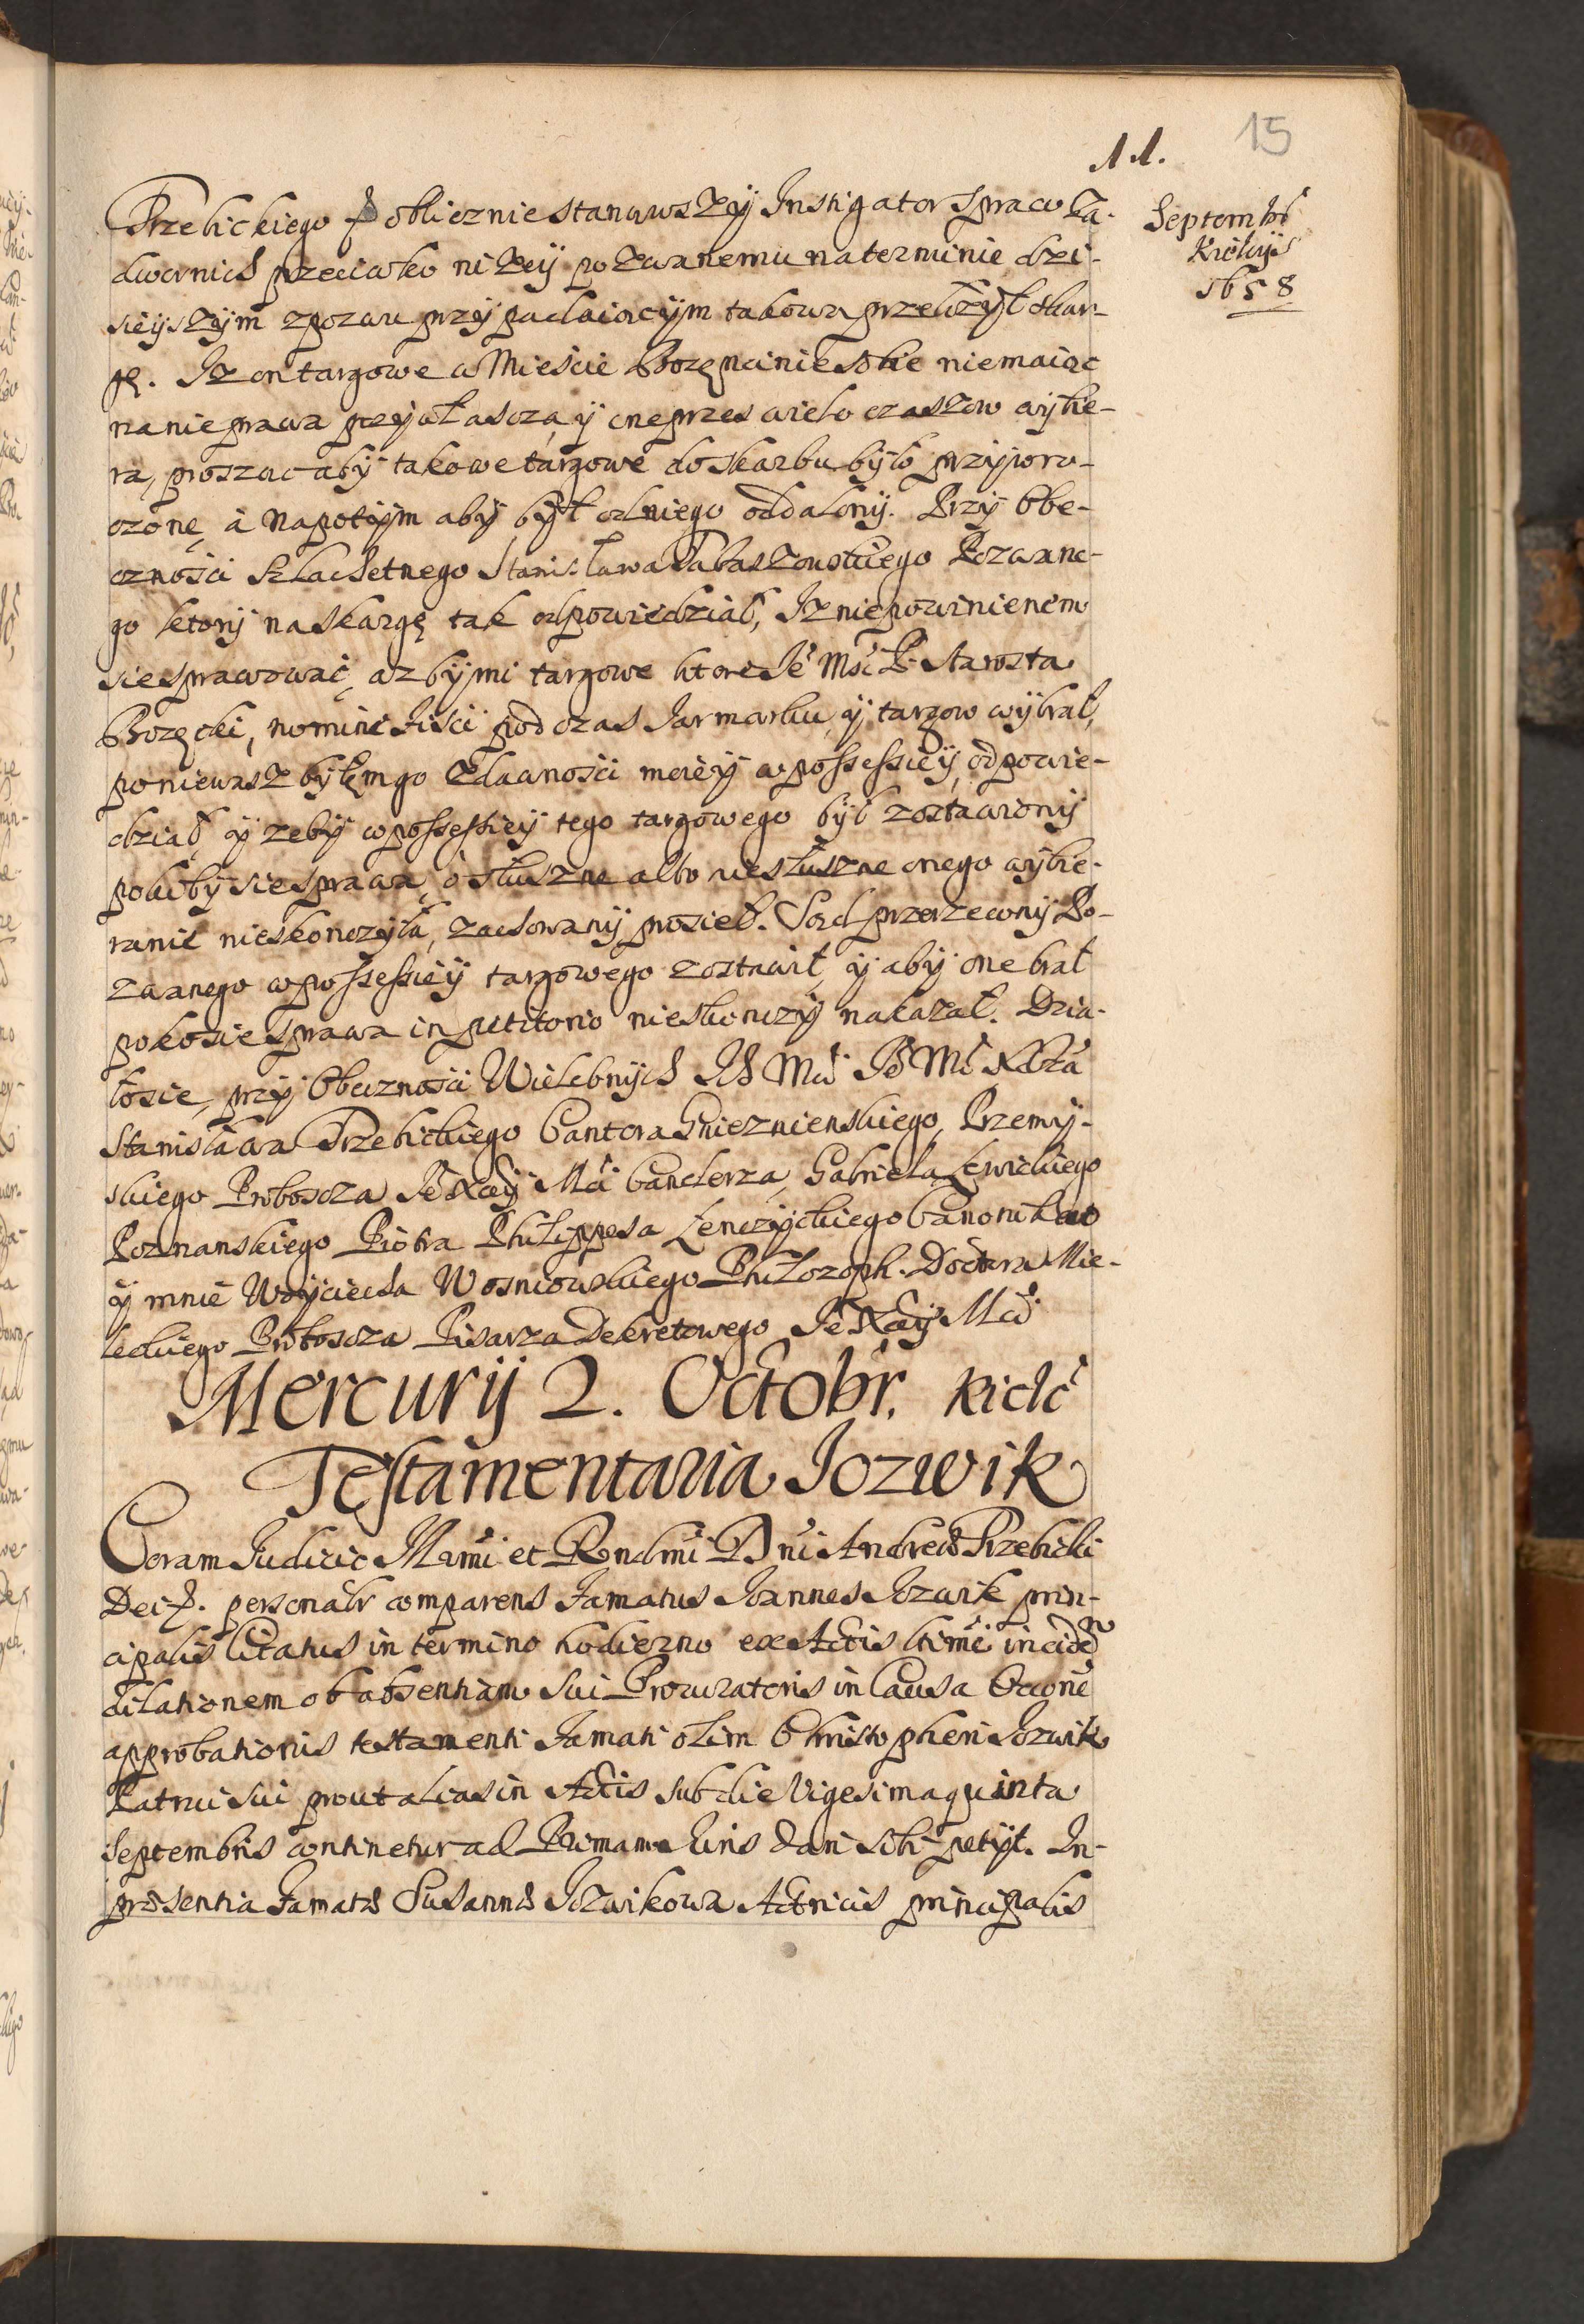 11.
15
Septembr
Kielcijs
1658
Trzebickiego &c obliecznie stanąwszÿ Instigator spraw Za-
dwornich przeciwko niżeÿ pozwanemu na terminie dzi-
sieÿszÿm z pozwu przÿpadaiącÿm takową przełożÿł skar-
gę. Iz on targowe w Mieście Bozęncinie sobie niemaiąc
na nie prawa przÿwłascza, ÿ one przes wielo czaszow wÿbie-
ra, proszac abÿ takowe targowe do skarbu bÿło przÿwro-
czone, á napotÿm abÿ bÿł od niego oddalonÿ. Przÿ Obe-
cznosci Szlachetnego Stanisława Tabaszowskiego Pozwane-
go ktorÿ na skargę tak odpowiedział, Iz niepowinienem
sie sprawować, az bÿ mi targowe ktore Ie Mśc P. Starosta
Bozęcki, nomine Iści pod czas Iarmarku, ÿ targow wÿbrał,
poniewasz bÿłęm go z dawności moieÿ w possessieÿ, odpowie-
dział, ÿ zebÿ w possessieÿ tego targowego bÿł zostawionÿ
pokibÿ sie sprawa, o słuszne albo niesłuszne onego wÿbie-
ranie nieskonczÿła, zachowanÿ prosieł. Sąd przerzeconÿ Po-
zwanego w possessieÿ targowego zostawił, ÿ abÿ one brał
poko sie sprawa in petitorio nieskonczÿ nakazał. Dzia-
łosie, przÿ Obecznosci Wielebnÿch Ich Mći Ie Mći Xdza
Stanisława Trzebickiego Cantora Gnieznienskiego, Przemÿ-
skiego Proboscza Ie Xcey Mći Canclerza, Gabriela Lewickiego
Poznanskiego Piotra Philippesa Lenczÿckiego Canonikow
ÿ mnie Woÿciecha Wosniowskiego Philozoph. Doctora Mie-
leckiego Proboscza Pisarza Dekretowego Ie Xcey Mći
Mercurij 2. Octobr. Kielc
Testamentaria Jozwik
Coram Judicio Illmi et Rendmi Dni Andreæ Trzebicki
Dei &. personalr comparens Famatus Joannes Jozwik prin-
cipalis Citatus in termino hodierno ex Actis ltime inciden
dilationem ob absentiam sui Procuratoris in Causa Occone
approbationis testamenti Famati olim Christopheri Jozwik
Patrui sui prout alias in Actis sub die Vigesima quinta
Septembris continetur ad Primam Iuris dari sibi petijt. In-
præsentia Famatæ Susannæ Jozwikowa Actricis principalis